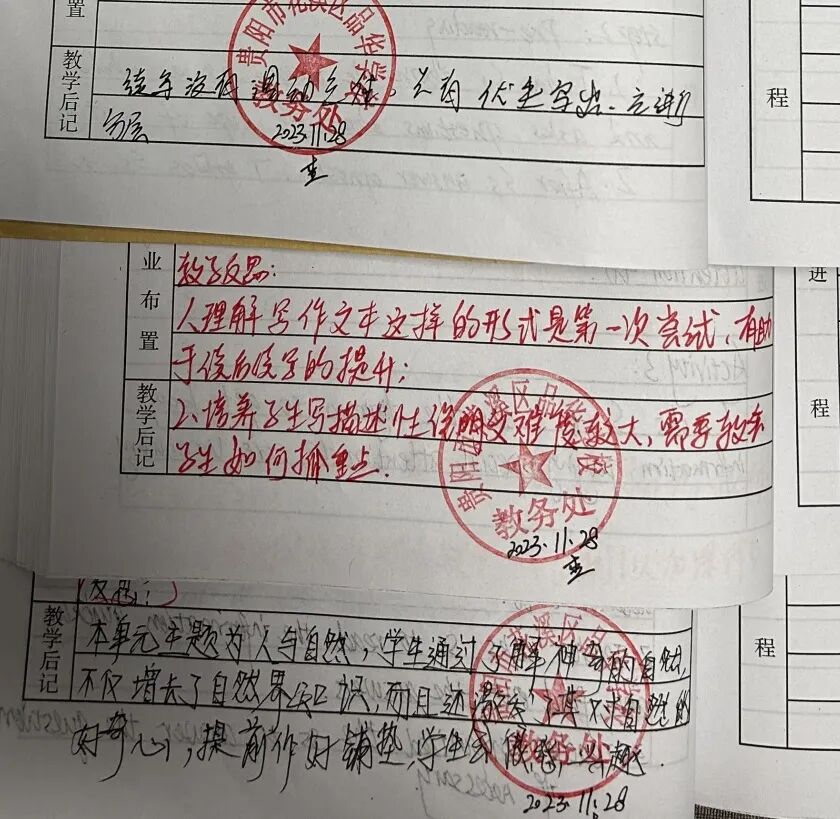 置
教学后记
贵阳市花溪区品华学校
教务处
2023.11.28
分层
程
业布置
教学反思:
1.理解写作文本这样的形式是第一次尝试,有助
于读后续写的提升;
教学后记
2、培养学生写描述性说明文难度较大,需要教会
学生如何抓重点.
教务处
2023.11.28
进
程
反思:
教学后记
本单元主题为人与自然,学生通过了解神奇的自然,
不仅增长了自然界知识,而且还激发了其对自然的
好奇心,提前作好铺垫,学生会很感兴趣.
教务处
2023.11.28
程